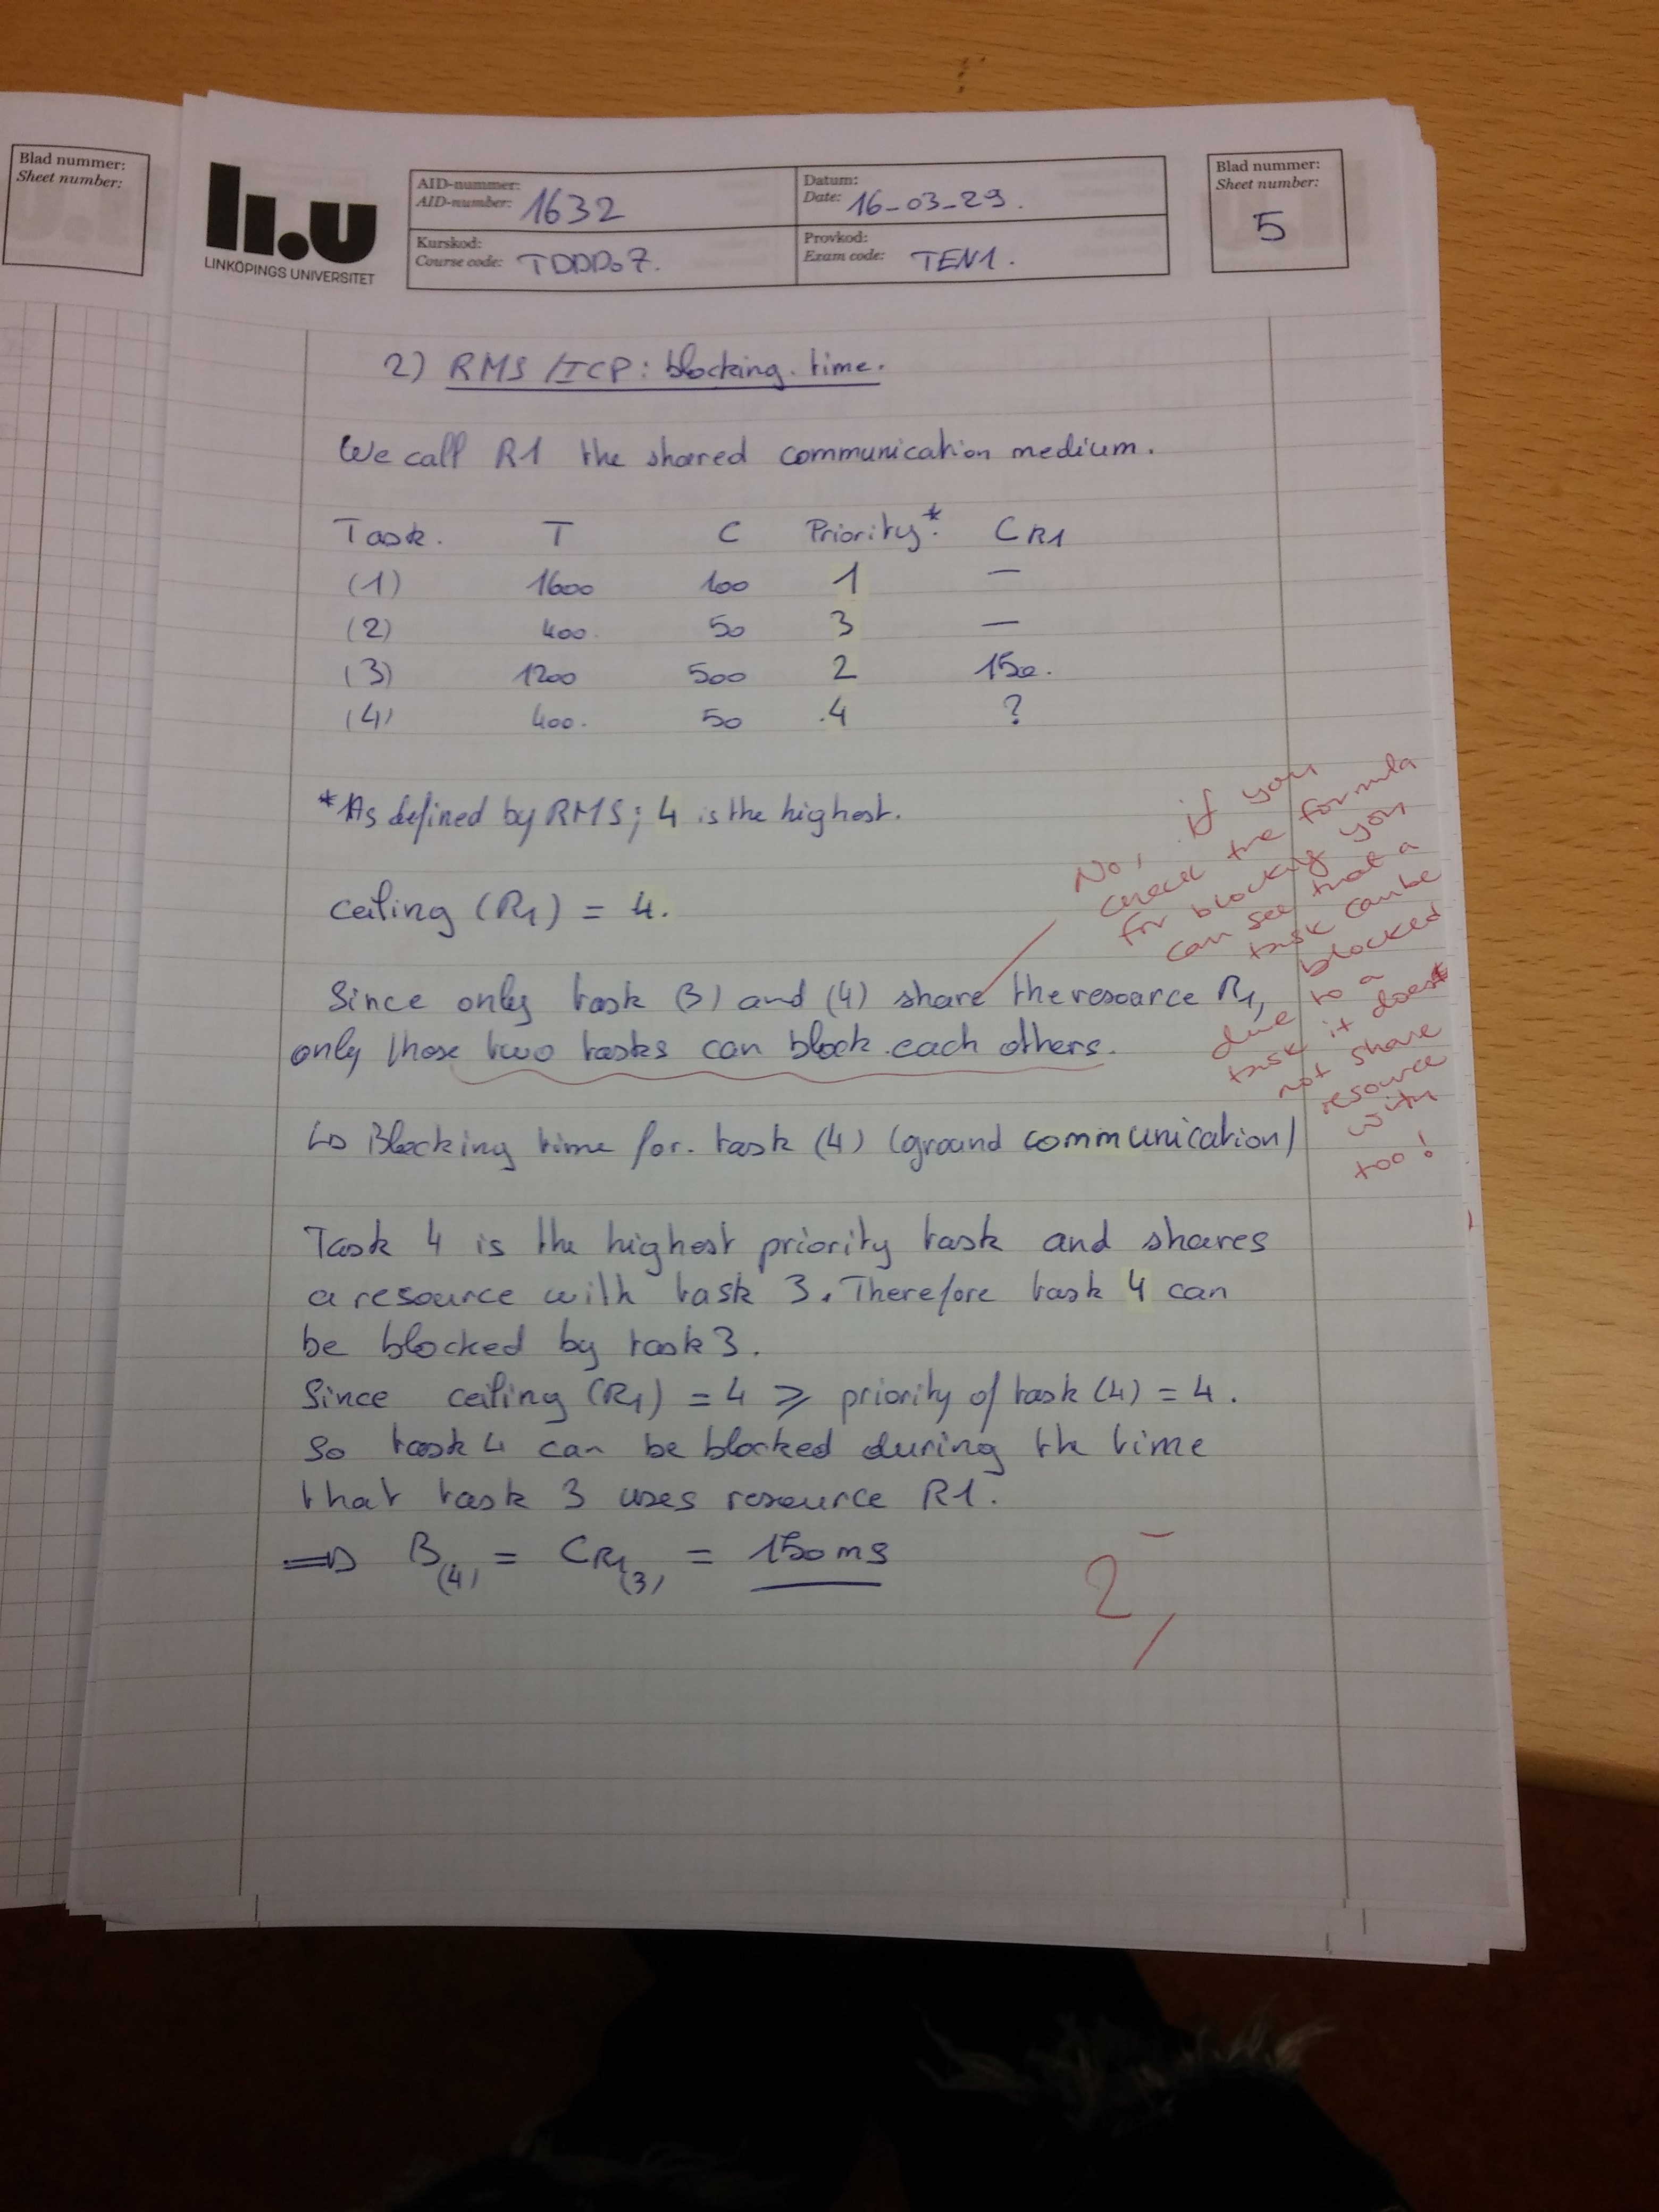 Blad nummer:
Sheet number:
LINKÖPINGS UNIVERSITET
AID-nummer:
AID-number: 1632
Datum:
Date: 16-03-29.
Kurskod:
Course code: TDDD07.
Provkod:
Exam code: TEN1.
Blad nummer:
Sheet number:
5
2) RMS /ICP: blocking time.
We call R1 the shared communication medium.
Task. T C Priority* CR1
(1) 1600 100 1 —
(2) 400. 50 3 —
(3) 1200 500 2 150.
(4) 400. 50 4 ?
*As defined by RMS; 4 is the highest.
ceiling (R1) = 4.
Since only task (3) and (4) share the resource R1,
only those two tasks can block each others.
No, if you
check the formula
for blocking you
can see that a
task can be
blocked
due to a
task it does
not share
resource
with
too!
↳ Blocking time for task (4) (ground communication)
Task 4 is the highest priority task and shares
a resource with task 3. Therefore task 4 can
be blocked by task 3.
Since ceiling (R1) = 4 ⩾ priority of task (4) = 4.
So task 4 can be blocked during the time
that task 3 uses resource R1.
⇒ B(4) = CR1(3) = 150 ms
2